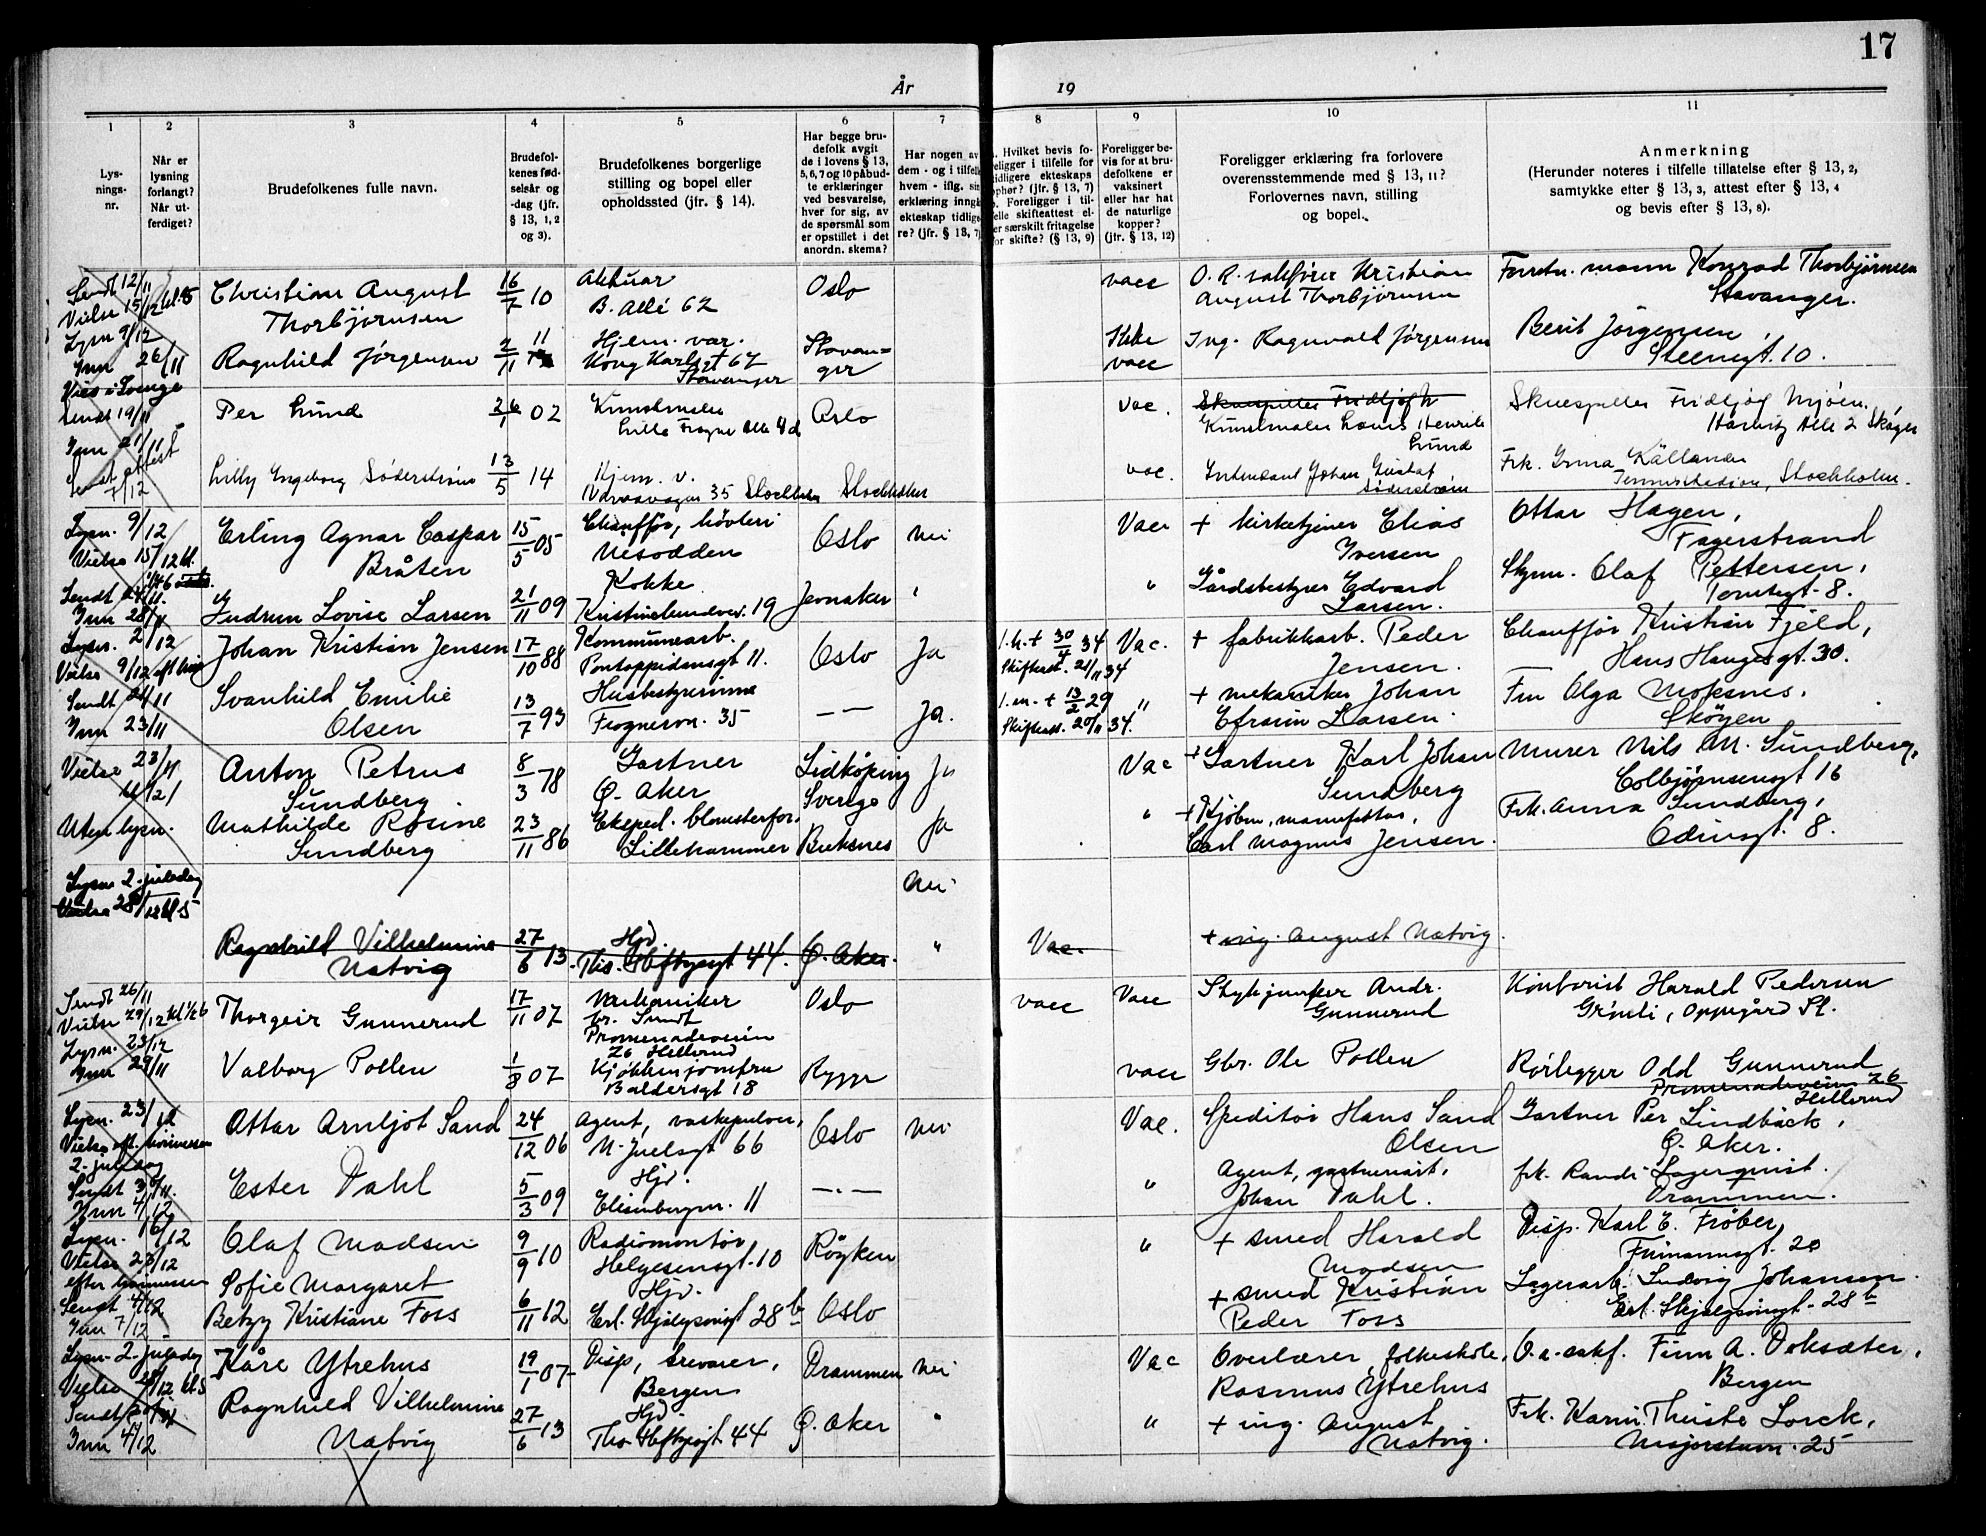 17
År 19
1 2 3 4 5 6 7 8 9 10 11
Lys-
nings-
nr.
Når er
lysning
forlangt?
Når ut-
ferdiget?
Brudefolkenes fulle navn.
Brudefol-
kenes fød-
selsår og
-dag (jfr.
§ 13, 1, 2
og 3).
Brudefolkenes borgerlige
stilling og bopel eller
opholdssted (jfr. § 14).
Har begge bru-
defolk avgit
de i lovens § 13,
5, 6, 7 og 10 påbud-
te erklæringer
ved besvarelse,
hver for sig, av
de spørsmål som
er opstillet i det
anordn. skema?
Har nogen av
dem - og i tilfelle
hvem - iflg. sin
erklæring inngå
ekteskap tidlige
re? (jfr. § 13, 7)
Hvilket bevis fo-
religger i tilfelle for
tidligere ekteskaps
ophør? (jfr. § 13, 7)
Foreligger i til-
felle skifteattest el-
er særskilt fritagelse
for skifte? (§ 13, 9)
Foreligger be-
vis for at bru-
defolkene er
vaksinert
eller har hat
de naturlige
kopper?
(jfr. § 13, 12)
Foreligger erklæring fra forlovere
overensstemmende med § 13, 11?
Forlovernes navn, stilling
og bopel.
Anmerkning
(Herunder noteres i tilfelle tillatelse efter § 13, 2,
samtykke efter § 13, 3, attest efter § 13, 4
og bevis efter § 13, 8).
Sendt 12/11
Vielse 15/12 kl. 5
Lysn 9/12
Inn 26/11
Christian August 16/7 10 Aktuar Oslo vacc O. R. sakfører Kristian Forretn. mann Konrad Thorbjørnsen
Thorbjørnsen B. Allé 62 August Thorbjørnsen Stavanger.
Ragnhild Jørgensen 2/11 11 Hjem. var. Stavan= Ikke Ing. Ragnvald Jørgensen Berit Jørgensen,
Kong Karlsgt 67 ger vacc Steensgt. 10.
Stavanger
Sendt 19/11
Inn 21/11
Sendt attest
7/12
Per Lund 26/1 02 Kunstmaler Oslo vac. Skuespiller Fridtjof M Skuespiller Fridtjof Mjøen.
Lille Frogner Alle 4d Kunstmaler Louis Henrik Harbitz Alle 2 Skøyen
Lund
Lilly Ingeborg Söderström 13/5 14 Hjem. v. Stockholm vac. Intendant Johan Gustaf Frk. Källander
35 Stockholm Söderström Tennisstadion, Stockholm.
Lysn. 9/12
Vielse 15/12 kl.
Sendt 24/11.
Inn 28/11
Erling Agnar Caspar 15/5 05 Chauffør, Oslo Nei Vacc + Kirketjener Elias Ottar Hagen,
Bråten Nesodden Iversen Fagerstrand
Gudrun Lovise Larsen 21/11 09 Kokke Jevnaker " " Gårdsbestyrer Edvard Olaf Pettersen,
Kristinelundvei. 19 Larsen. Tomtegt. 8.
Lysn. 2/12
Vielse 9/12
Sendt 21/11
Inn 23/11
Johan Kristian Jensen 17/10 88 Kommunearb. Oslo Ja 1. h. + 30/4 34 Vac. + fabrikkarb. Peder Chauffør Kristian Fjeld,
Pontoppidansgt 11. Skifteatt. 21/11 34 Jensen. Hans Haugesgt. 30.
Svanhild Emilie 13/7 93 Husbestyrerinne — — Ja. 1. m. + 13/2 29 " + mekaniker Johan Fru Olga Moksnes.
Olsen Frognervn. 35 Skifteatt. 20/11 34. Efraim Larsen. Skøyen
Vielse 23/11
kl 12 1
Uten lysn.
Anton Petrus 8/3 78 Gartner Lidköping Ja Vac + Gartner Karl Johan Murer Nils M. Sundberg,
Sundberg. Ø. Aker Sverige Sundberg Colbjørnsensgt 16
Mathilde Rosine 23/11 86 Eksped. blomsterfor. Buksnes Ja " + Kjøbm., manufaktur, Frk. Anna Sundberg,
Sundberg Lillehammer Carl Magnus Jensen. Odinsgt. 8.
Lysn 2. juledag
Vielse 28/12 kl 5
Nei
Ragnhild Vilhelmine 27/6 13. Hjd. Ø. Aker. " Vac. + ing. August Natvig.
Natvig Ths. Heftyesgt 44.
Sendt 26/11
Vielse 29/12 kl 1/2 6
Lysn. 23/12
Inn 29/11
Thorgeir Gunnerud 17/11 07 Mekaniker Oslo vacc Vacc Stykjunker Andr. Kontorist Harald Pedersen
br. Sundt Gunnerud Grønli, Oppegård St.
Promenadeveien
26 Hellerud
Valborg Pollen 1/8 07 Kjøkkenjomfru Rygge vacc Gbr. Ole Pollen Rørlegger Odd Gunnerud
Baldersgt 18 Promenadeveien 26
Hellerud
Lysn. 23/12
Vielse eft. 
2. juledag
Sendt 30/11.
Inn 4/12
Ottar Arnljot Sand 24/12 06 Agent, vaskepulver, Oslo Nei Vac. Speditør Hans Sand Gartner Per Lindbäck,
N. Juelsgt 66 Olsen Ø. Aker.
Ester Dahl 5/3 09 Hjd. — . — " Agent, frk. Randi Lagerqvist.
Elisenbergvn. 11 Johan Dahl. Drammen.
Lysn. 16/12
Vielse 23/12
efter 
Sendt 4/12
Inn 7/12
Olaf Madsen 9/9 10 Radiomontør, Røyken " + smed Harald Disp. Karl E. Frøber,
Helgesensgt. 10 Madsen 20
Sofie Margaret Hjd. + smed Kristian Lagerarb. Ludvig Johansen.
Betzy Kristiane Foss 6/11 12 Erl. Skjalgssønsgt 28b Oslo Peder Foss Erl. Skjalgssønsgt. 28b
Lysn. 2. juledag
Vielse 28/12 kl. 5
Sendt
Inn 4/12
Kåre Ytrehus 19/1 07 Disp, trevarer, Drammen Nei Vac Overlærer, folkeskole, O. r. sakf. Finn A. Doksæter,
Bergen Rasmus Ytrehus Bergen
Ragnhild Vilhelmine 27/6 13 Hjd. Ø. Aker " " + ing. August Frk. Karin Theiste Lorck,
Natvig Tho. Heftyesgt 44 Natvig. Majorstuvn. 25